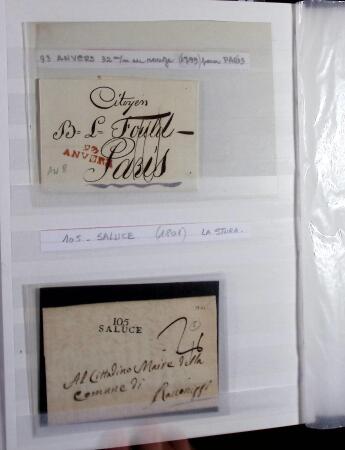 93 ANVERS 32 m/m en rouge (1799) pour PARIS
Citoyen
B= L= Fould -
Paris
93
ANVERS
105 - SALUCE (1801) LA STURA.
105
SALUCE
Al Cittadino Maire della
Comune di
Racconiggi